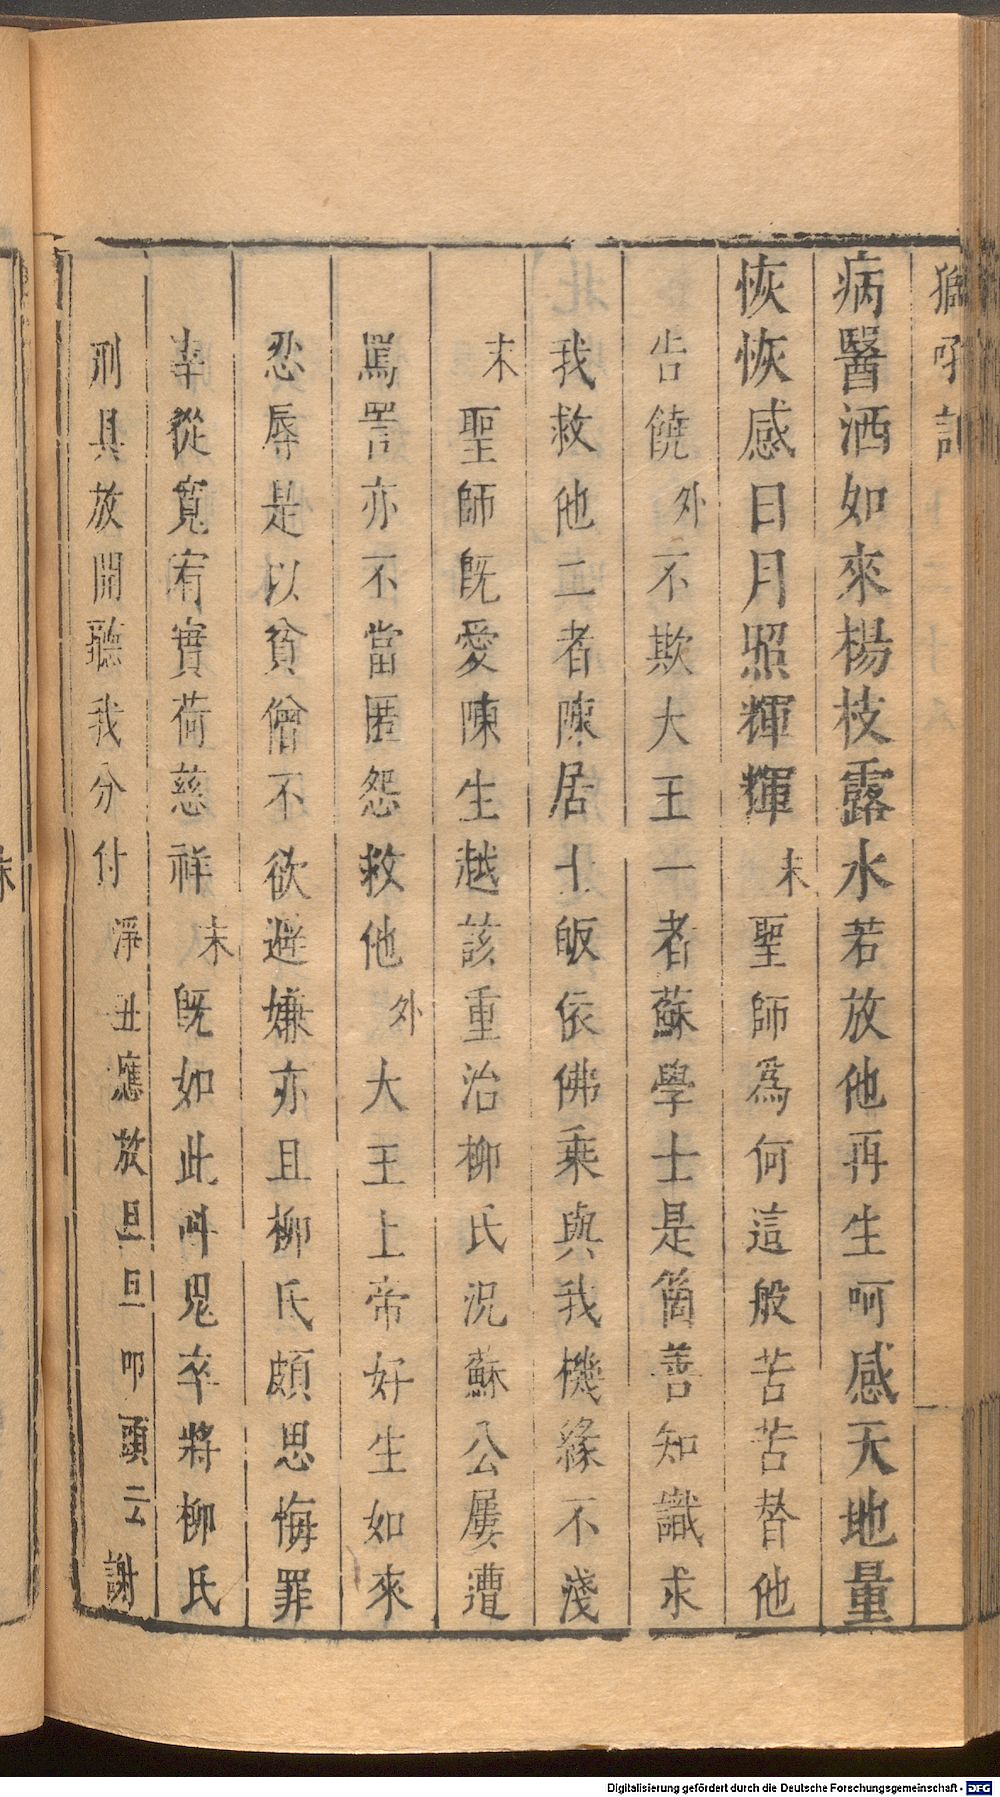 獅吼記
病醫洒如來楊枝露水若放他再生呵感天地量
恢恢感日月照輝輝末聖師為何這般苦苦替他
告饒外不欺大王一者蘇學士是箇善知識求
我救他二者陳居士皈依佛乘與我機緣不淺
末聖師既愛陳生越該重治柳氏況蘇公屢遭
罵詈亦不當匿怨救他外大王上帝好生如來
忍辱是以貧僧不欲避嫌亦且柳氏頗思悔罪
幸從寬宥實荷慈祥末既如此叫鬼卒將柳氏
刑具放開聽我分付淨丑應放旦旦叩頭云謝
Digitalisierung gefördert durch die Deutsche Forschungsgemeinschaft - DFG